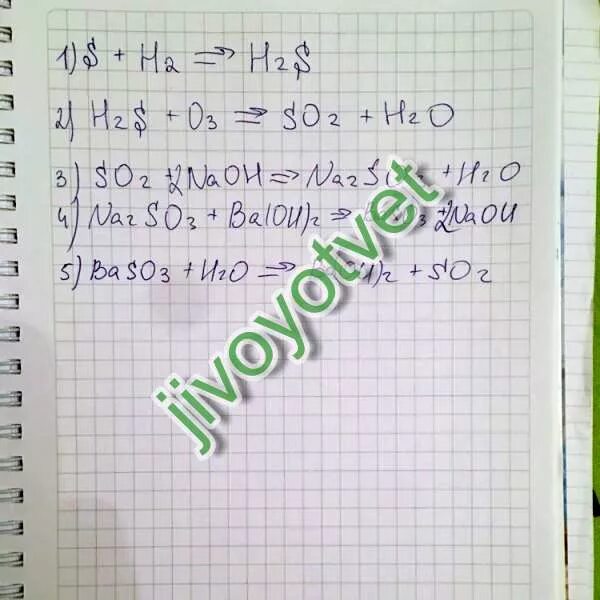 1) S + H2 => H2S
2) H2S + O3 => SO2 + H2O
3) SO2 + 2NaOH => Na2S 3 + H2O
4) Na2SO3 + Ba(OH)2 => 3 + 2NaOH
5) BaSO3 + H2O => )2 + SO2
jivoyotvet